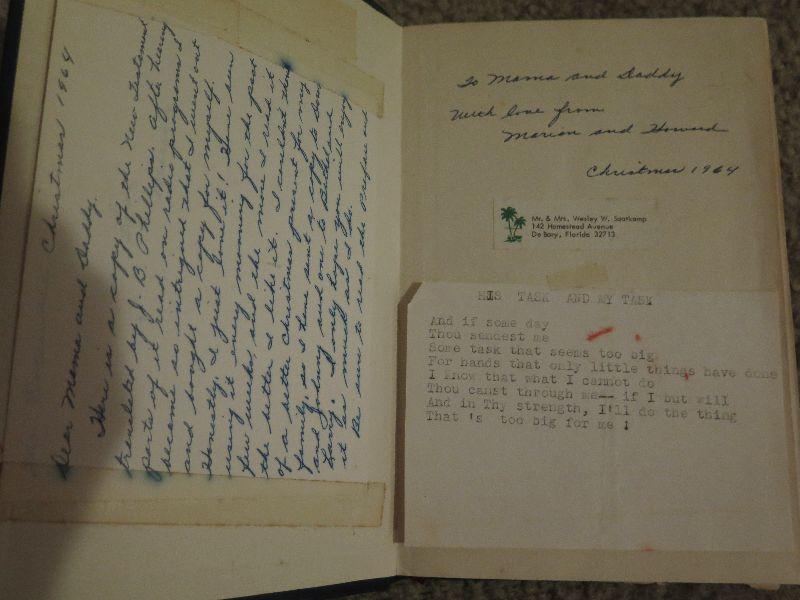 Christmas 1964
Dear Mama and Daddy,
Here is a copy of the New Testament
translated by J. B. Phillips. After hearing
parts of it read on radio programs I
became so intrigued that I went out
and bought a copy for myself.
Honestly, I just love it! I have been
using it every morning for the past
few weeks, and the more I read it
the better I like it. I couldn't think
of a better Christmas present for my
family, so I have sent a copy to
and Judy and one to and
Larry. I only hope you will enjoy
it as much as I do.
Be sure to read the Preface and
To Mama and Daddy
With love from
Marion and Howard
Christmas 1964
Mr. & Mrs. Wesley W. Saatkamp
142 Homestead Avenue
De Bary, Florida 32713
HIS TASK AND MY TASK
And if some day
Thou sendest me
Some task that seems too big
For hands that only little things have done
I know that what I cannot do
Thou canst through me-- if I but will
And in Thy strength, I'll do the thing
That 's too big for me !